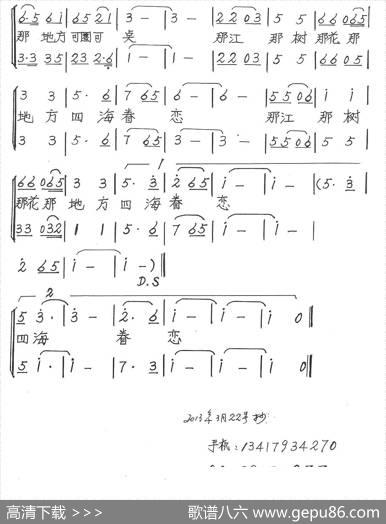 6· 5 6 1 | 6 5 2 1 | 3 – | 3 – | 2 2 0 3 | 5 5 | 6 6 0 6 5 |
那 地方 可園可 那江 那 树 那花 那
3· 3 3 5 | 2 3 2· 6 | 1 – | 1 – | 2 2 0 3 | 5 5 | 6 6 0 5 |
3 3 | 5· 6 | 7 6 5 | 6 – | 6 – | 5 5 0 6 | i i |
地 方 四 海 眷 恋 那江 那 树
3 3 | 5· 6 | 7 6 5 | 3 – | 3 – | 5 5 0 6 | 5 5 |
1
6 6 0 6 5 | 3 3 | 5· 3 | 2 6 5 | i – | i – | (5· 3 |
那花 那 地 方 四 海 眷 恋
3 3 0 3 2 | 1 1 | 5· 6 | 7 6 5 | i – | i – |
2 6 5 | i – | i –) ‖
D.S
2
5 3· | 3 – | 2· 6 | i – | i – | i 0 ‖
四 海 眷 恋
5 i· | i – | 7· 3 | i – | i – | i 0 ‖
2013年3月22号抄
手机：13417934270
高清下载 >>>
歌谱八六 www.gepu86.com